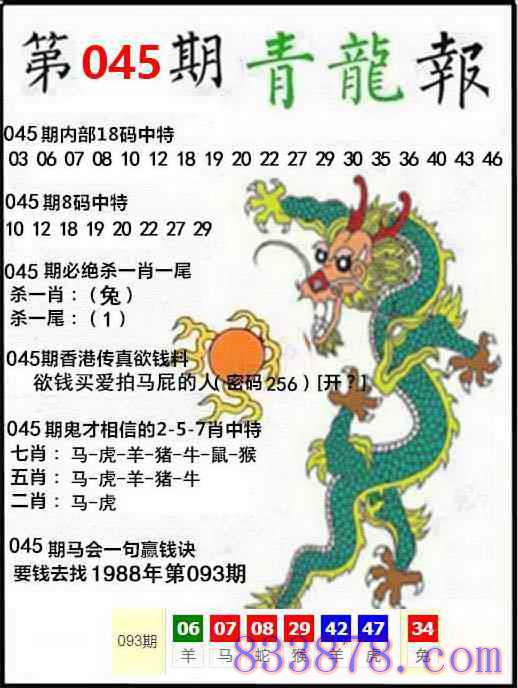 第045期 青龍報
045期内部18码中特
03 06 07 08 10 12 18 19 20 22 27 29 30 35 36 40 43 46
045期8码中特
10 12 18 19 20 22 27 29
045 期必绝杀一肖一尾
杀一肖：（兔）
杀一尾：（1）
045期香港传真欲钱料
欲钱买爱拍马屁的人（密码256）[开？]
045期鬼才相信的2-5-7肖中特
七肖：马-虎-羊-猪-牛-鼠-猴
五肖：马-虎-羊-猪-牛
二肖：马-虎
045 期马会一句赢钱诀
要钱去找1988年第093期
093期 06 07 08 29 42 47 34
羊 马 蛇 猴 羊 虎 兔
833878.com